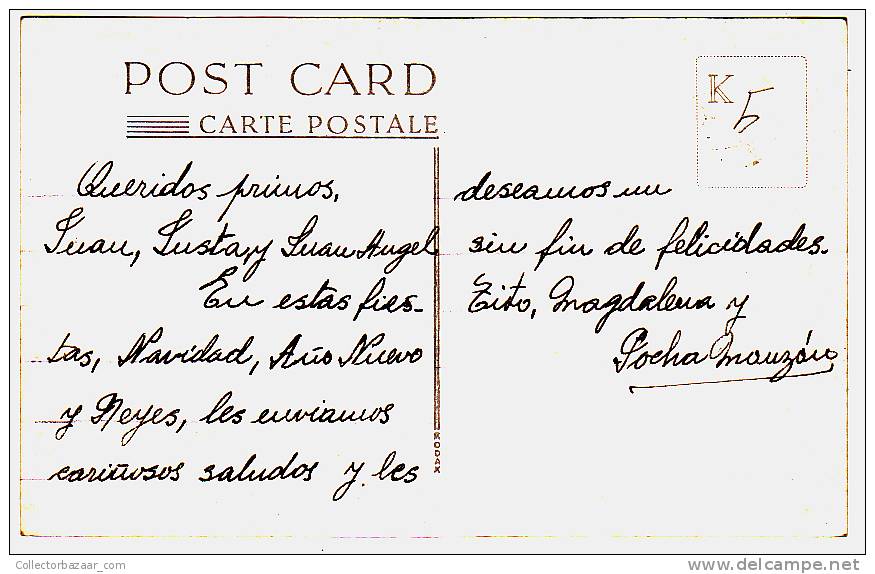 POST CARD
CARTE POSTALE
K
5
Queridos primos,
Juan, Justa, y Juan Angel
En estas fies-
tas, Navidad, Año Nuevo
y Reyes, les enviamos
cariñosos saludos y les
deseamos un
sin fin de felicidades.
Tito, Magdalena y
Pocha Monzón
KODAK
CollectorBazaar_com
www.delcampe.net